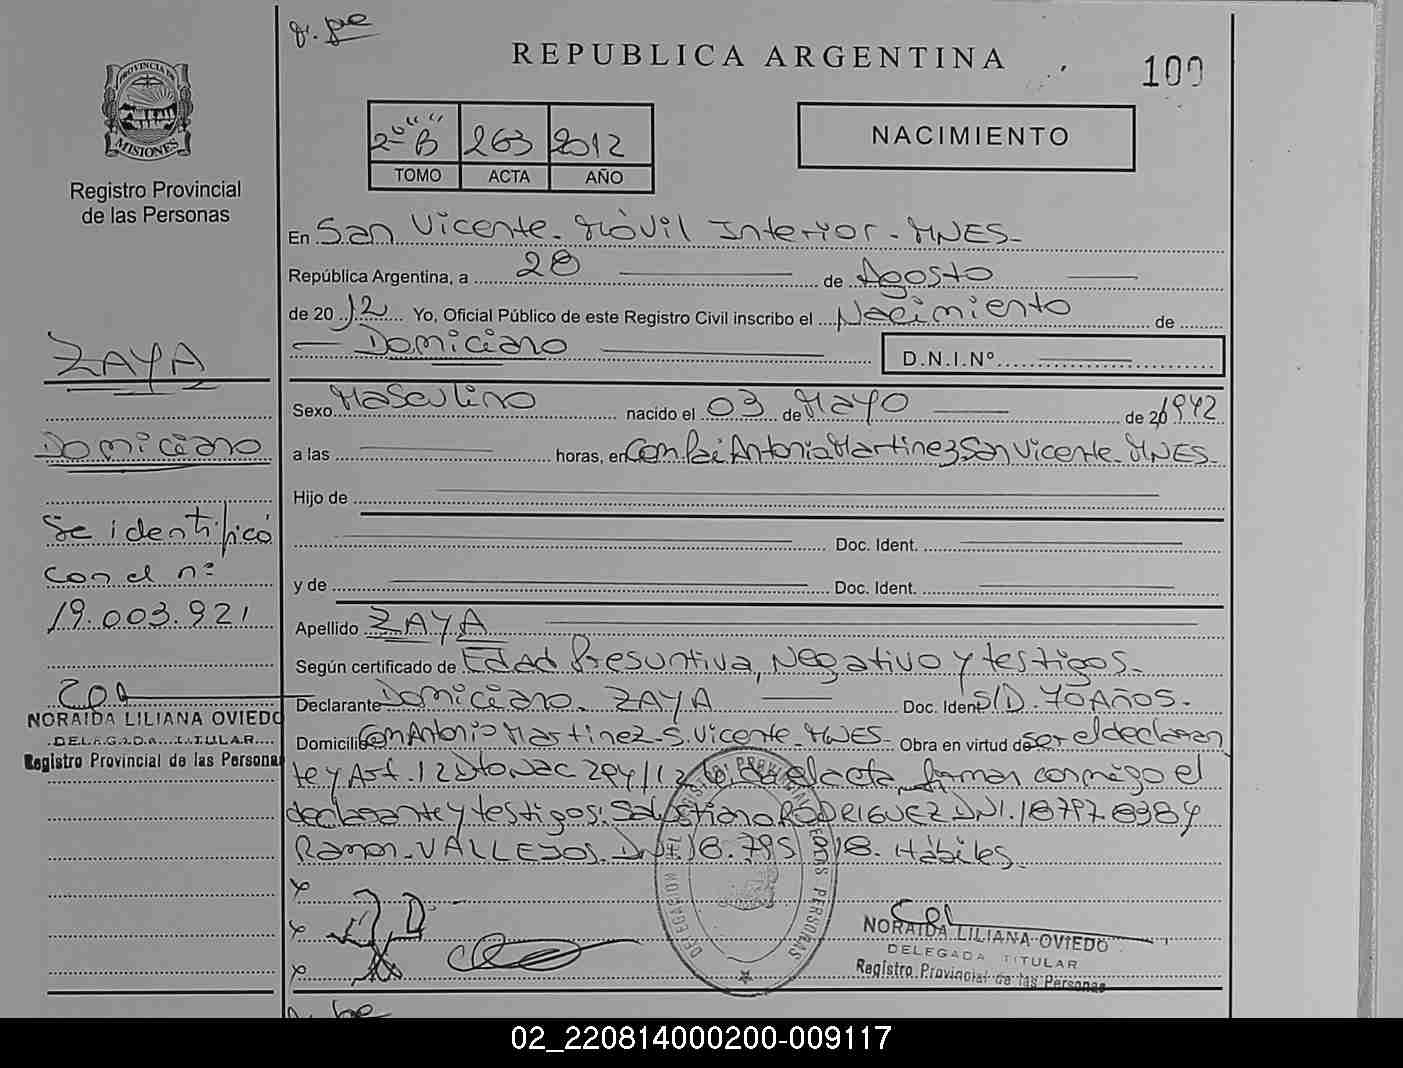 REPUBLICA ARGENTINA
100
PROVINCIA DE
MISIONES
Registro Provincial
de las Personas
2º "B" 263 2012
TOMO ACTA AÑO
NACIMIENTO
En San Vicente - Móvil Interior - MNES -
República Argentina, a 28 de Agosto
de 2012 Yo, Oficial Público de este Registro Civil inscribo el Nacimiento de
Domiciano D.N.I.Nº
Sexo Masculino nacido el 03 de Mayo de 1942
a las horas, en Com. Pai Antonio Martinez San Vicente - MNES -
Hijo de
Doc. Ident.
y de Doc. Ident.
Apellido ZAYA
Según certificado de Edad Presuntiva, Negativo y testigos -
Declarante Domiciano ZAYA Doc. Ident S/D. 70 AÑOS -
Domicilio Com Antonio Martinez - S. Vicente - MNES - Obra en virtud de ser el declaran
te y Art. 12 Dto Nac 294/12 del acta, firman conmigo el
declarante y testigos: Salustiano RODRIGUEZ DNI. 18.797.838 y
Ramon VALLEJOS. DNI. 18.795 918. Hábiles.
ZAYA
Domiciano
Se identificó
con el nº
19.003.921
NORAIDA LILIANA OVIEDO
DELEGADA TITULAR
Registro Provincial de las Personas
NORAIDA LILIANA OVIEDO
DELEGADA TITULAR
Registro Provincial de las Personas
02_220814000200-009117